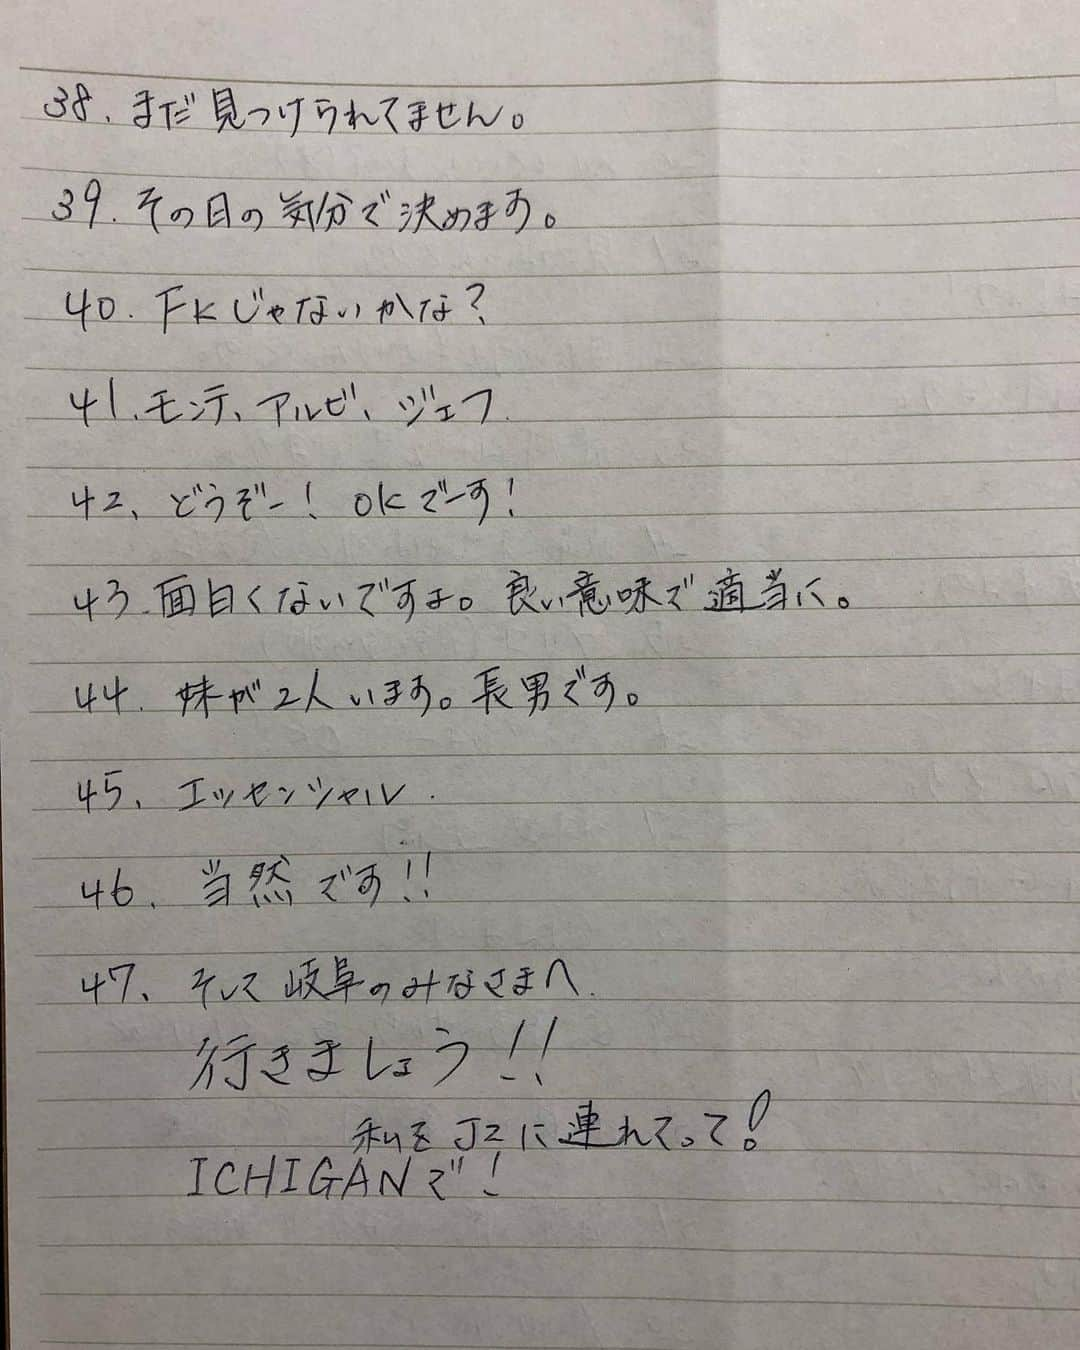 38. まだ見つけられてません。
39. その日の気分で決めます。
40. FKじゃないかな?
41. モンテ、アルビ、ジェフ.
42、どうぞー! OKでーす!
43. 面白くないですよ。良い意味で適当に。
44. 妹が2人います。長男です。
45、エッセンシャル.
46、当然です!!
47、そして岐阜のみなさまへ.
行きましょう!!
私をJ2に連れてって!
ICHIGANで!